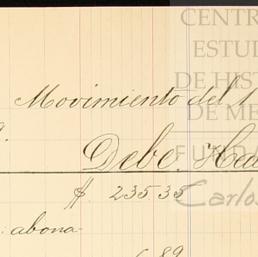 CENTR
ESTU
DE HIST
DE ME
FUNDA
Carlos
Movimiento del
Debe. Ha
$ 235 35
abona